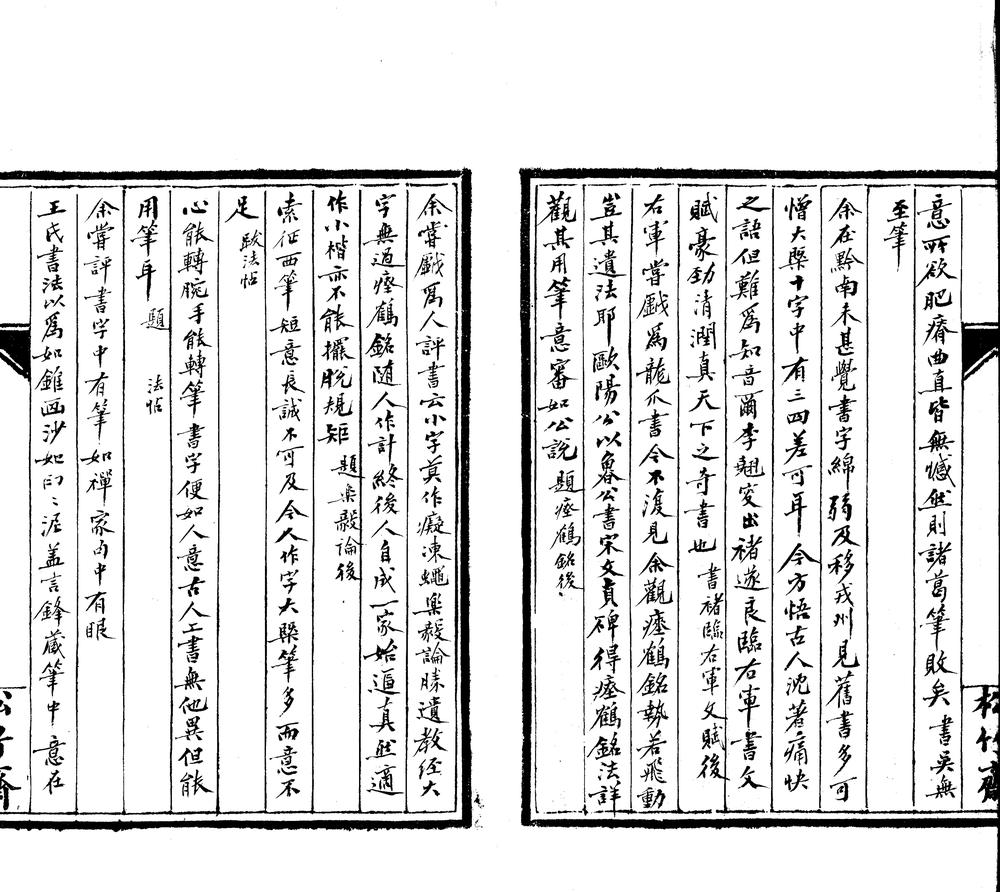 意所欲肥瘠曲直皆無憾然則諸葛筆敗矣 書吳無
至筆
余在黔南未甚覺書字綿弱及移戎州見舊書多可
憎大槩十字中有三四差可耳今方悟古人沈著痛快
之語但難爲知音爾李翹叟出褚遂良臨右軍書文
賦豪勁清潤真天下之奇書也 書褚臨右軍文賦後
右軍嘗戲爲龍爪書今不復見余觀瘞鶴銘執若飛動
豈其遺法耶歐陽公以魯公書宋文貞碑得瘞鶴銘法詳
觀其用筆意審如公說 題瘞鶴銘後
余嘗戲爲人評書云小字莫作癡凍蠅樂毅論勝遺教經大
字無過瘞鶴銘随人作計終後人自成一家始逼真然適
作小楷亦不能擺脫規矩 題樂毅論後
索征西筆短意長誠不可及今人作字大槩筆多而意不
足 跋法帖
心能轉腕手能轉筆書字便如人意古人工書無他異但能
用筆耳 題 法帖
余嘗評書字中有筆如禪家句中有眼
王氏書法以爲如錐畫沙如印印泥盖言鋒藏筆中意在
松竹齋
松竹齋